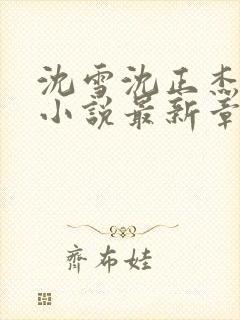 沈雪沈正杰
小说最新章
齐布娃